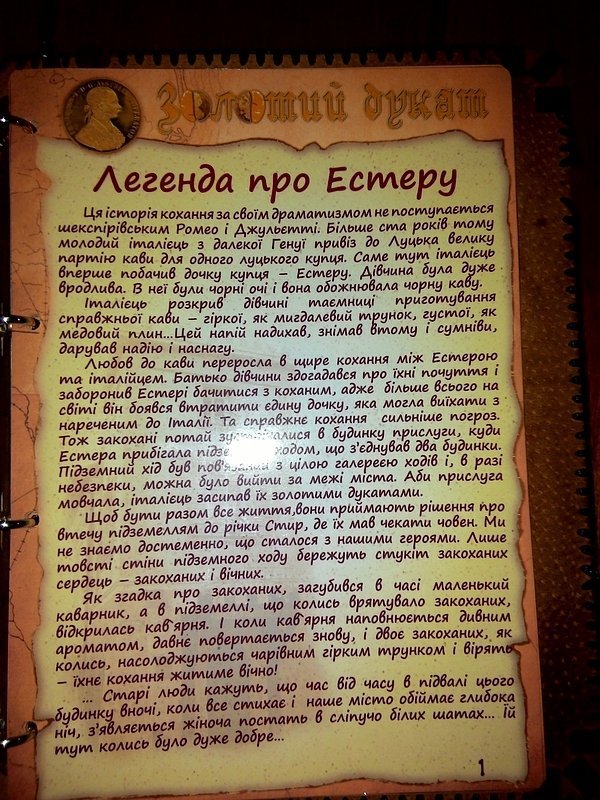 Золотий дукат
Легенда про Естеру
Ця історія кохання за своїм драматизмом не поступається
шекспірівським Ромео і Джульєтті. Більше ста років тому
молодий італієць з далекої Генуї привіз до Луцька велику
партію кави для одного луцького купця. Саме тут італієць
вперше побачив дочку купця – Естеру. Дівчина була дуже
вродлива. В неї були чорні очі і вона обожнювала чорну каву.
Італієць розкрив дівчині таємниці приготування
справжньої кави – гіркої, як мигдалевий трунок, густої, як
медовий плин...Цей напій надихав, знімав втому і сумніви,
дарував надію і наснагу.
Любов до кави переросла в щире кохання між Естерою
та італійцем. Батько дівчини здогадався про їхні почуття і
заборонив Естері бачитися з коханим, адже більше всього на
світі він боявся втратити єдину дочку, яка могла виїхати з
нареченим до Італії. Та справжнє кохання сильніше погроз.
Тож закохані потай зустрічалися в будинку прислуги, куди
Естера прибігала ходом, що з'єднував два будинки.
Підземний хід був пов'язаний з цілою галереєю ходів і, в разі
небезпеки, можна було вийти за межі міста. Аби прислуга
мовчала, італієць засипав їх золотими дукатами.
Щоб бути разом все життя,вони приймають рішення про
втечу підземеллям до річки Стир, де їх мав чекати човен. Ми
не знаємо достеменно, що сталося з нашими героями. Лише
товсті стіни підземного ходу бережуть стукіт закоханих
сердець – закоханих і вічних.
Як згадка про закоханих, загубився в часі маленький
каварник, а в підземеллі, що колись врятувало закоханих,
відкрилась кав`ярня. І коли кав`ярня наповнюється дивним
ароматом, давнє повертається знову, і двоє закоханих, як
колись, насолоджуються чарівним гірким трунком і вірять
– їхнє кохання житиме вічно!
... Старі люди кажуть, що час від часу в підвалі цього
будинку вночі, коли все стихає і наше місто обіймає глибока
ніч, з'являється жіноча постать в сліпучо білих шатах... Їй
тут колись було дуже добре...
1